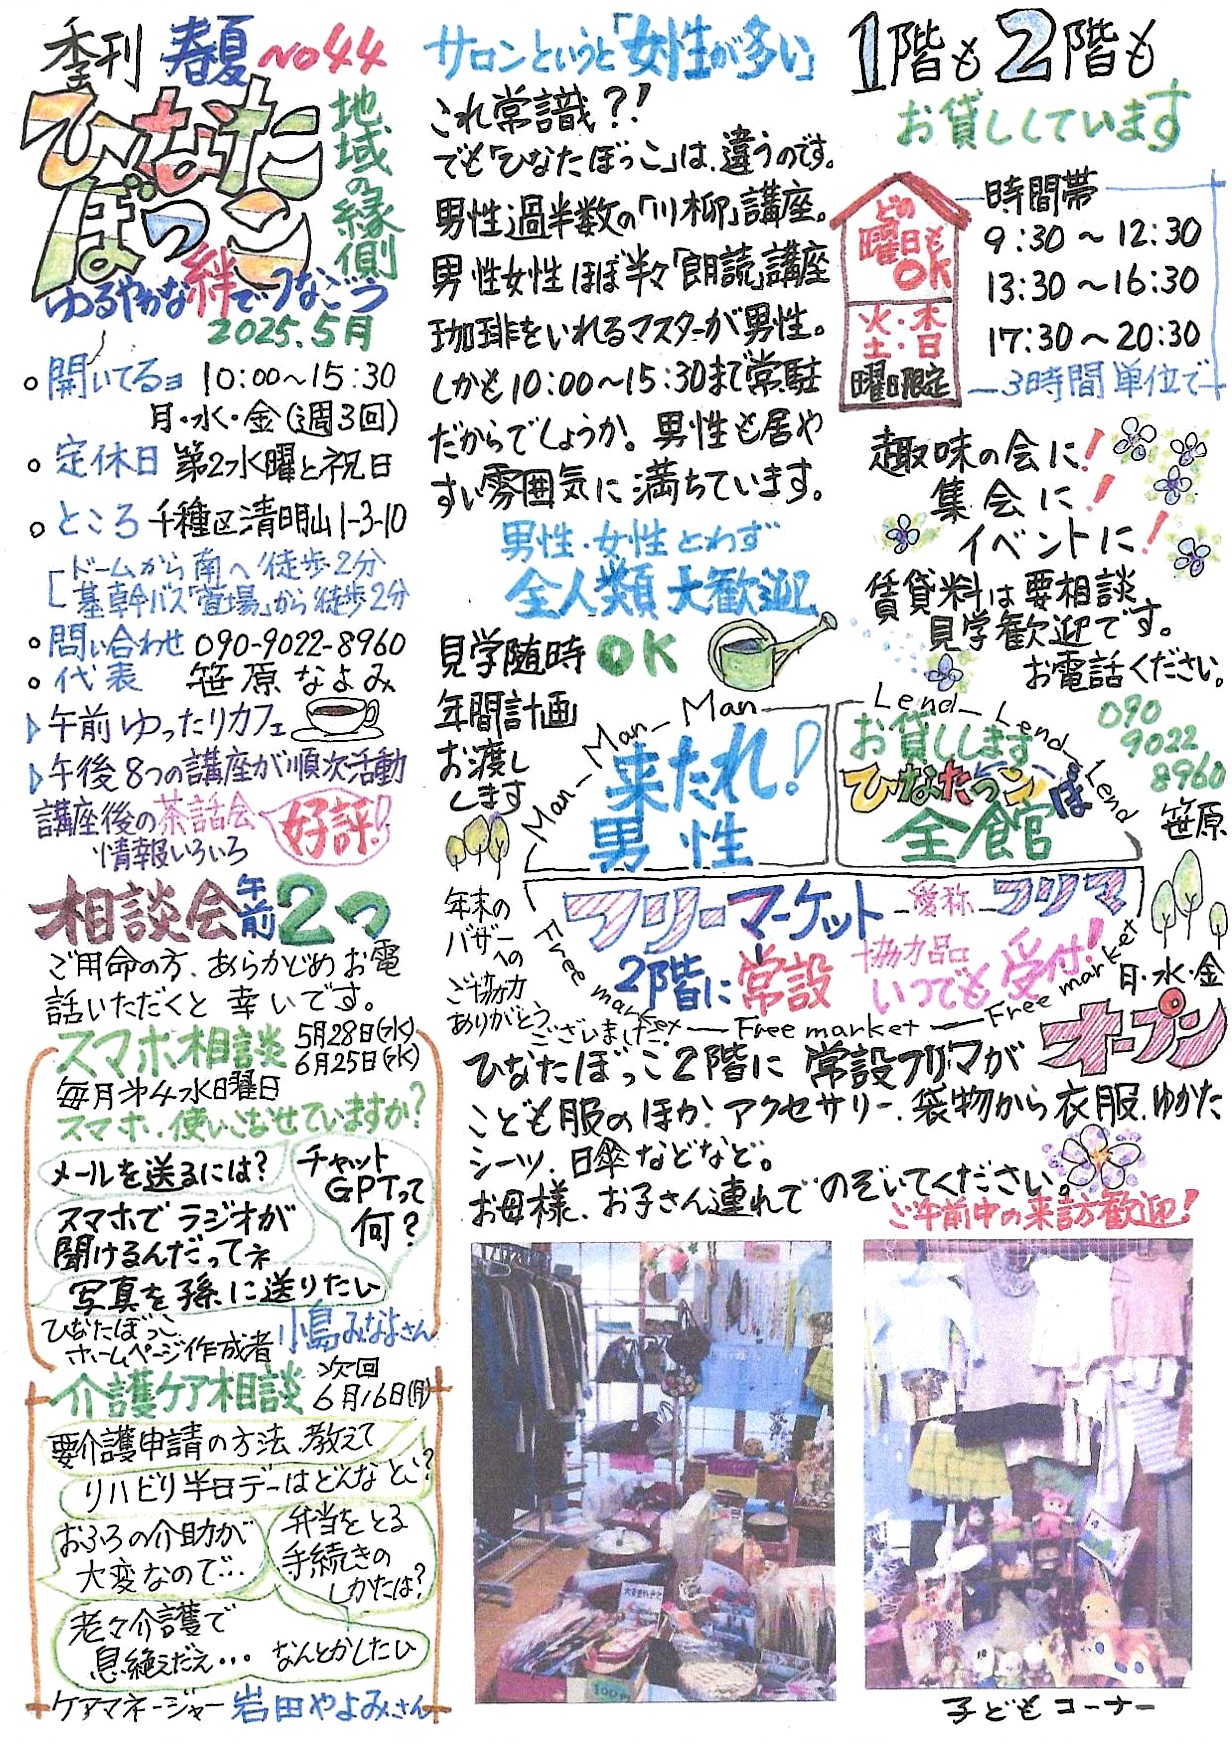 季刊 春夏 No44
ひなたぼっこ
地域の縁側
ゆるやかな絆でつなごう
2025.5月
○開いてるヨ 10:00～15:30
月・水・金(週3回)
○定休日 第2水曜と祝日
○ところ 千種区清明山1-3-10
ドームから南へ徒歩2分
基幹バス「萱場」から徒歩2分
○問い合わせ 090-9022-8960
○代表 笹原なよみ
▷午前 ゆったりカフェ
▷午後 8つの講座が順次活動
講座後の茶話会
情報いろいろ
好評!
相談会 午前 2つ
ご用命の方、あらかじめお電
話いただくと幸いです。
スマホ相談 5月28日(水)
6月25日(水)
毎月第4水曜日
スマホ、使いこなせていますか?
メールを送るには?
チャット
GPTって
何?
スマホでラジオが
聞けるんだってネ
写真を孫に送りたい
ひなたぼっこ
ホームページ作成者 小島みなよさん
介護ケア相談 次回
6月16日(月)
要介護申請の方法 教えて
リハビリ半日デーはどんなとこ?
おふろの介助が
大変なので…
弁当をとる
手続きの
しかたは?
老々介護で
息絶えだえ… なんとかしたい
ケアマネージャー 岩田やよみさん
サロンというと「女性が多い」
これ常識?!
でも「ひなたぼっこ」は、違うのです。
男性過半数の「川柳」講座。
男性女性ほぼ半々「朗読」講座
珈琲をいれるマスターが男性。
しかも10:00～15:30まで常駐
だからでしょうか。男性も居や
すい雰囲気に満ちています。
男性・女性とわず
全人類大歓迎
見学随時OK
年間計画
お渡し
します
Man—Man—Man—Man
来たれ!
男性
1階も2階も
お貸ししています
どの
曜日も
OK
火・木
土・日
曜日限定
時間帯
9:30～12:30
13:30～16:30
17:30～20:30
3時間単位で
趣味の会に!
集会に!
イベントに!
賃貸料は要相談
見学歓迎です。
お電話ください。
090
9022
8960
笹原
Lend—Lend—Lend—Lend
お貸しします
ひなたぼっこ
全館
年末の
バザーへの
ご協力
ありがとう
ございました。
フリーマーケット—愛称—フリマ
2階に常設
協力品
いつでも受付!
Free market—Free market—Free market
月・水・金
オープン
ひなたぼっこ2階に常設フリマが
こども服のほか、アクセサリー、袋物から衣服、ゆかた
シーツ、日傘などなど。
お母様、お子さん連れでのぞいてください。
ご午前中の来訪歓迎!
子どもコーナー